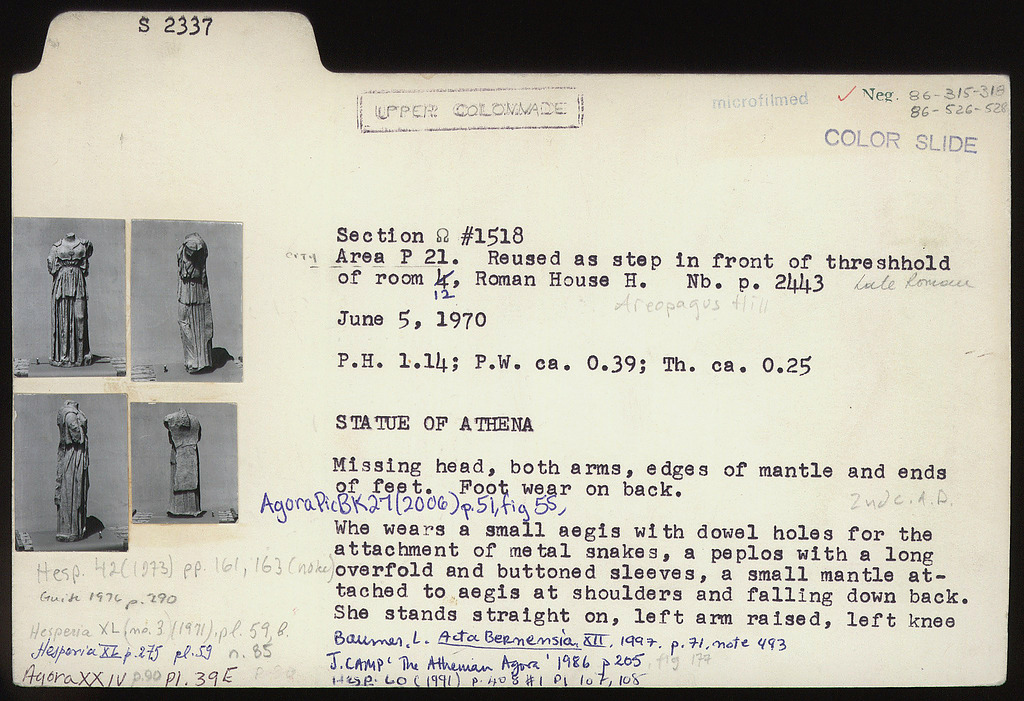 S 2337
UPPER COLONNADE
microfilmed
✓ Neg. 86-315-318
86-526-528
COLOR SLIDE
Section Ω #1518
Area P 21. Reused as step in front of threshhold
of room 4, Roman House H. Nb. p. 2443 Late Roman
12
Areopagus Hill
June 5, 1970
P.H. 1.14; P.W. ca. 0.39; Th. ca. 0.25
STATUE OF ATHENA
Missing head, both arms, edges of mantle and ends
of feet. Foot wear on back.
2nd c. A.D.
AgoraPicBK27(2006)p.51,fig 55,
Whe wears a small aegis with dowel holes for the
attachment of metal snakes, a peplos with a long
Hesp. 42(1973) pp. 161, 163 (note)
overfold and buttoned sleeves, a small mantle at-
Guide 1976 p.290
tached to aegis at shoulders and falling down back.
She stands straight on, left arm raised, left knee
Hesperia XL (no. 3 (1971), pl. 59, B.
Baumer, L. Acta Bernensia, XII, 1997. p. 71, note 493
Hesperia XL p. 275 pl. 59 n. 85
J. CAMP 'The Athenian Agora' 1986 p 205, fig 179
Agora XXIV p.90 Pl. 39E
Hesp. 60 (1991) p. 408 #1 Pl 107, 108